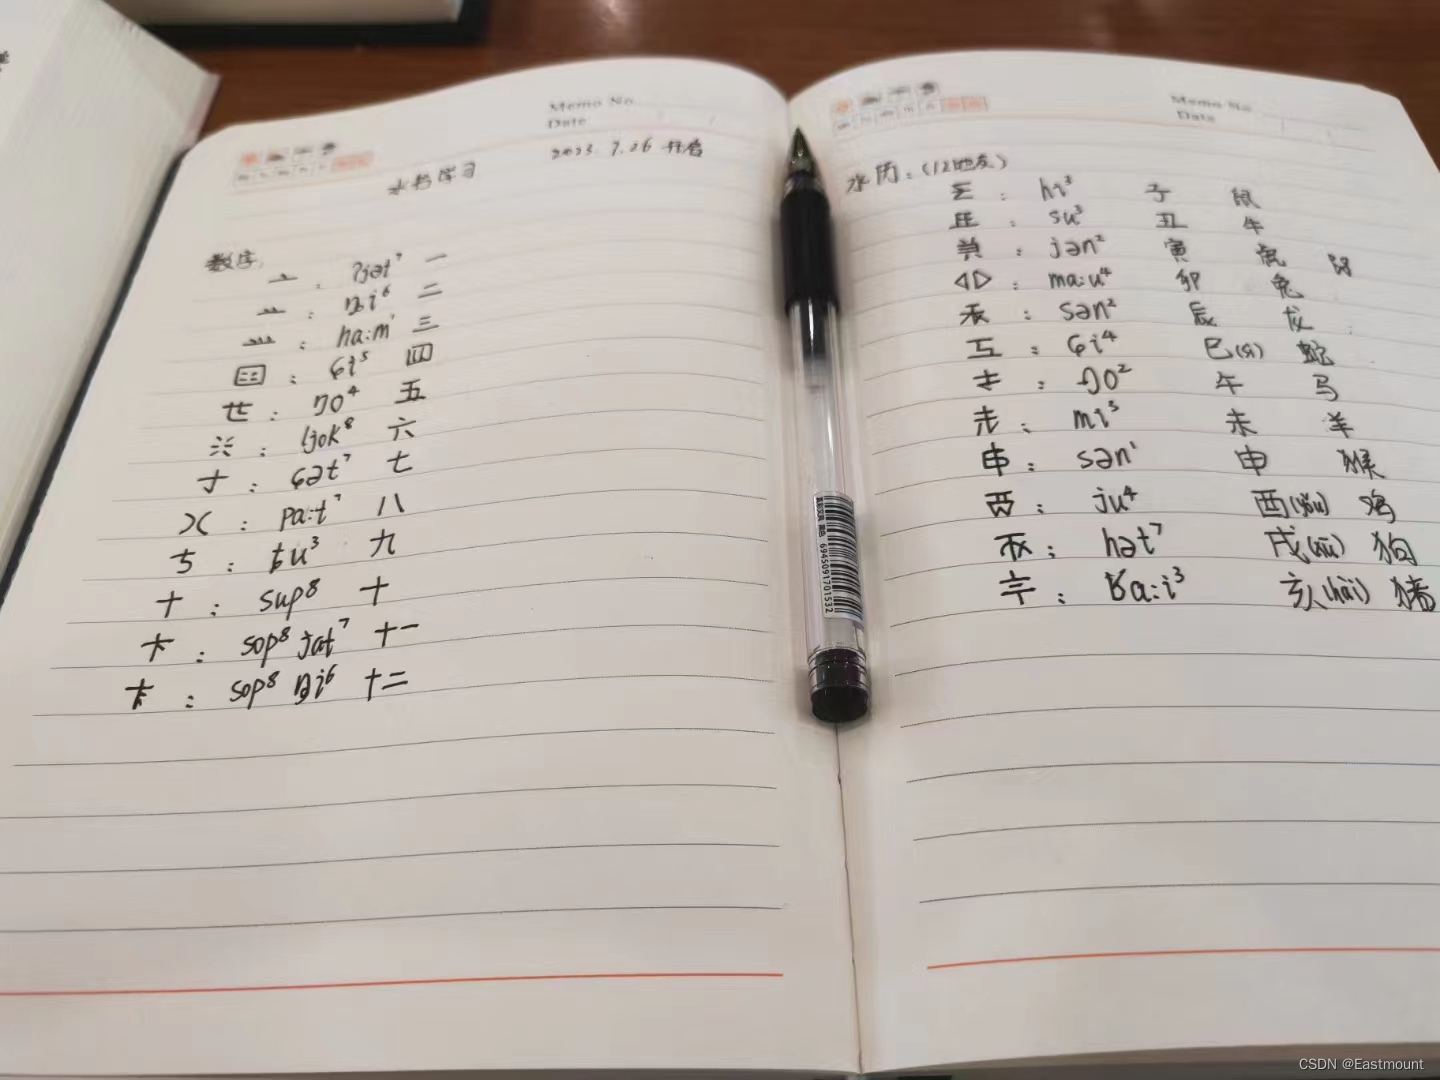 Memo No.
Date
2023.7.26 开启
水书学习
数字:
: ʔjət⁷ 一
: ȵi⁶ 二
: ha:m¹ 三
: ɕi⁵ 四
: ŋo⁴ 五
: ljok⁸ 六
: ɕət⁷ 七
: pa:t⁷ 八
: ʈu³ 九
十 : sup⁸ 十
: sop⁸ jat⁷ 十一
: sop⁸ ȵi⁶ 十二
Memo No.
Date
水历:(12地支)
: hi³ 子 鼠
: su³ 丑 牛
: jən² 寅 虎
: ma:u⁴ 卯 兔
: sən² 辰 龙
: ɕi⁴ 巳(sì) 蛇
: ŋo² 午 马
: mi³ 未 羊
申 : sən¹ 申 猴
: ju⁴ 酉(yǒu) 鸡
: hət⁷ 戌(xū) 狗
: ʁa:i³ 亥(hài) 猪
6945091701532
CSDN @Eastmount